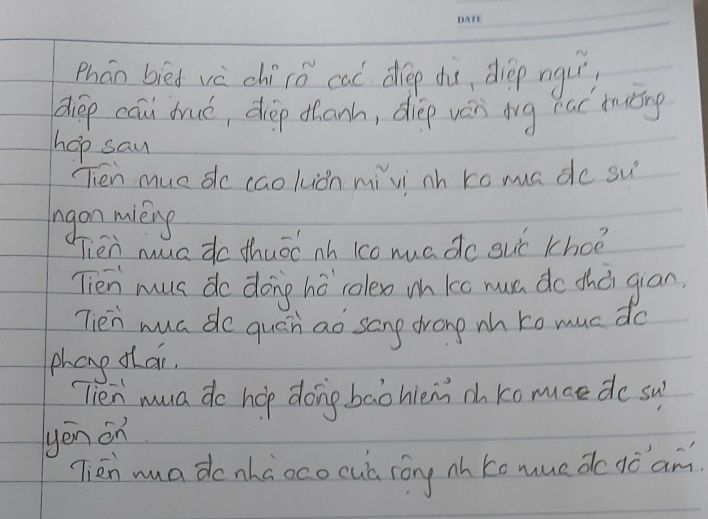 DATE
Phân biệt và chỉ rõ các điệp từ, điệp ngữ,
điệp cấu trúc, điệp thanh, điệp vần trg các trường
hợp sau
Tiền mua đc cao lương mĩ vị nh ko mua đc sự
ngon miệng
Tiền mua đc thuốc nh ko mua đc sức khoẻ
Tiền mua đc đồng hồ rolex nh ko mua đc thời gian.
Tiền mua đc quần áo sang trọng nh ko mua đc
phong thái.
Tiền mua đc hợp đồng bảo hiểm nh ko mua đc sự
yên ổn
Tiền mua đc nhà cao cửa rộng nh ko mua đc tổ ấm.